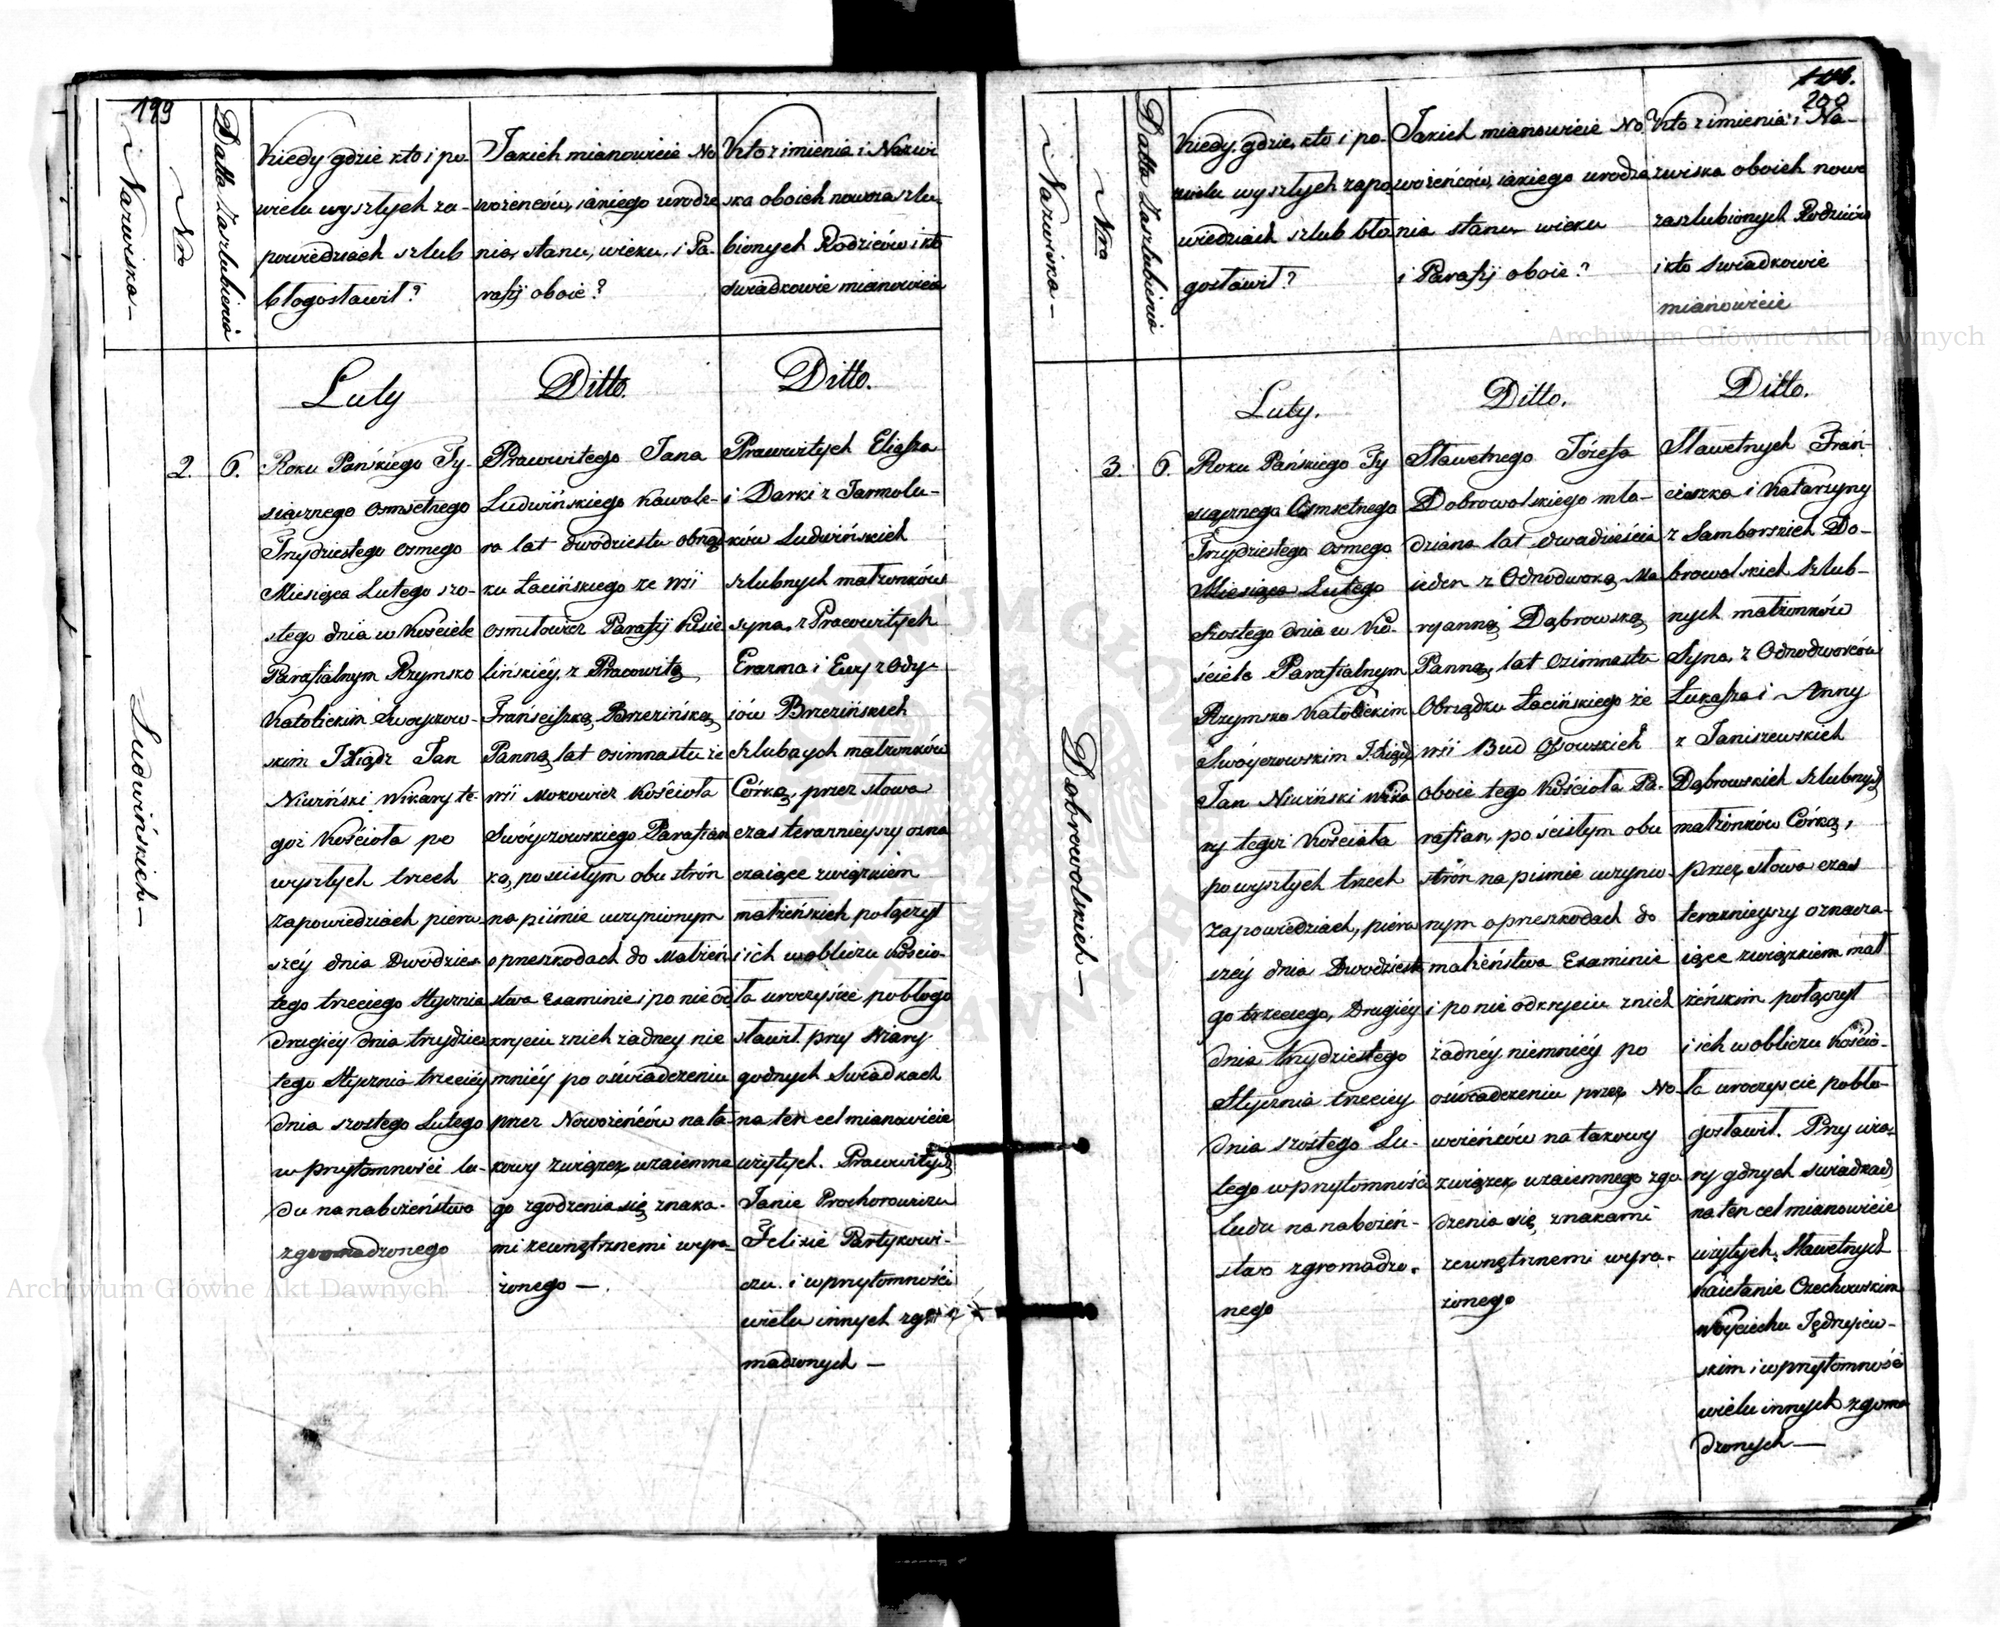 199
Nazwiska —
Nro
Datta Zaslubienia
Kiedy gdzie kto i po
wielu wyszłych za-
powiedziach szlub
błogosławił?
Jakich mianowicie No
wożeńców, iakiego urodze
nia, stanu, wieku, i Pa-
rafij oboie?
Kto z imienia i Nazwi
ska oboich nowozaszlu
bionych Rodziców i kto
swiadkowie mianowicie
Luty
Ditto.
Ditto.
Ludwińskich —
2.
6.
Roku Pańskiego Ty-
siącznego osmsetnego
Trzydziestego osmego
Miesiąca Lutego szo-
stego dnia w Kościele
Parafialnym Rzymsko
Katolickim Swoyczow-
skim JXiądz Jan
Niwiński Wikary te-
goż Kościoła po
wyszłych trzech
zapowiedziach pierw-
széy dnia Dwódzies
tego trzeciego Stycznia
drugiéy dnia trzydzies
tego Stycznia trzeciéy
dnia szostego Lutego
w przytomności lu-
du na nabożeństwo
zgromadzonego
Prawowitego Jana
Ludwińskiego Kawale-
ra lat dwódziestu obrząd
ku Łacińskiego ze wsi
Osmiłowicz Parafij Kisie
lińskiéy, z Pracowitą
Franciszką Brzezińską
Panną, lat osimnastu ze
wsi Mokowicz Kościoła
Swóyczowskiego Parafian
ką, po ścisłym obu strón
na piśmie uczynionym
o przeszkodach do Małżeń
stwa Examinie i po nie od
kryciu z nich żadney nie
mniéy po oświadczeniu
przez Nowożeńców na ta-
kowy związek wzaiemne
go zgodzenia się znaka-
mi zewnętrznemi wyra-
żonego —.
Prawowitych Eliasza
i Darki z Jarmolu-
ków Ludwińskich
szlubnych małżonków
syna, z Pracowitych
Erazma i Ewy z Ody-
iów Brzezińskich
Szlubnych małżonków
Córką, przez słowa
czas teraznieyszy ozna
czaiące związkiem
małżeńskich połączył
i ich w obliczu Kościo-
ła uroczyście pobłogo
sławił przy Wiary
godnych Swiadkach
na ten cel mianowicie
użytych. Prawowitych
Janie Prochorowiczu
Felixie Partykowi-
czu i w przytomności
wielu innych zgro
madzonych —
200
Nazwiska —
Nro
Datta Zaslubienia
Kiedy, gdzie, kto i po-
wielu wyszłych zapo
wiedziach szlub bło
gosławił?
Jakich mianowicie No
wożeńców, iakiego urodze
nia stanu wieku
i Parafij oboie?
Kto z imienia i Na-
zwiska oboich nowo
zaszlubionych Rodziców
i kto swiadkowie
mianowicie
Luty.
Ditto.
Ditto.
Dobrowolskich —
3.
6.
Roku Pańskiego Ty
siącznego Osmsetnego
Trzydziestego Osmego
Miesiąca Lutego
Szostego dnia w Ko-
ściele Parafialnym
Rzymsko Katolickim
Swóyczowskim JXiądz
Jan Niwiński Wika
ry tegoż Kościoła
po wyszłych trzech
zapowiedziach, pierw
széy dnia Dwodzieste
go trzeciego, Drugiéy
dnia trzydziestego
Stycznia trzeciey
dnia szóstego Lu-
tego w przytomności
ludu na nabożeń-
stwo zgromadzo-
nego
Sławetnego Józefa
Dobrowolskiego mło-
dziana lat dwadzieścia
ieden z Odnodworką Ma
ryanną Dąbrowską
Panną, lat Osimnastu
Obrządku Łacińskiego ze
wsi Bud Ossowskich
oboie tego Kościoła Pa-
rafian, po ścisłym obu
strón na piśmie uczynio-
nym o przeszkodach do
małżeństwa Examinie
i po nie odkryciu z nich
żadnéy niemniéy po
oświadczeniu przez No-
wożeńców na takowy
związek wzaiemnego zgo
dzenia się znakami
zewnętrznemi wyra-
żonego
Sławetnych Fran-
ciszka i Katarzyny
z Samborskich Do-
browolskich Szlub-
nych małżonków
Syna, z Odnodworców
Łukasza i Anny
z Janiszewskich
Dąbrowskich Szlubnych
małżonków Córką,
przez słowa czas
teraznieyszy oznacza-
iące związkiem mał
żeńskim połączył
i ich w obliczu Kościo-
ła uroczyście pobło-
gosławił. Przy wia-
ry gdnych swiadkach
na ten cel mianowicie
użytych, Sławetnych
Kaietanie Orzechowskim
Woyciechu Jędrzeiew-
skim i w przytomności
wielu innych zgroma
dzonych —
Archiwum Główne Akt Dawnych
Archiwum Główne Akt Dawnych